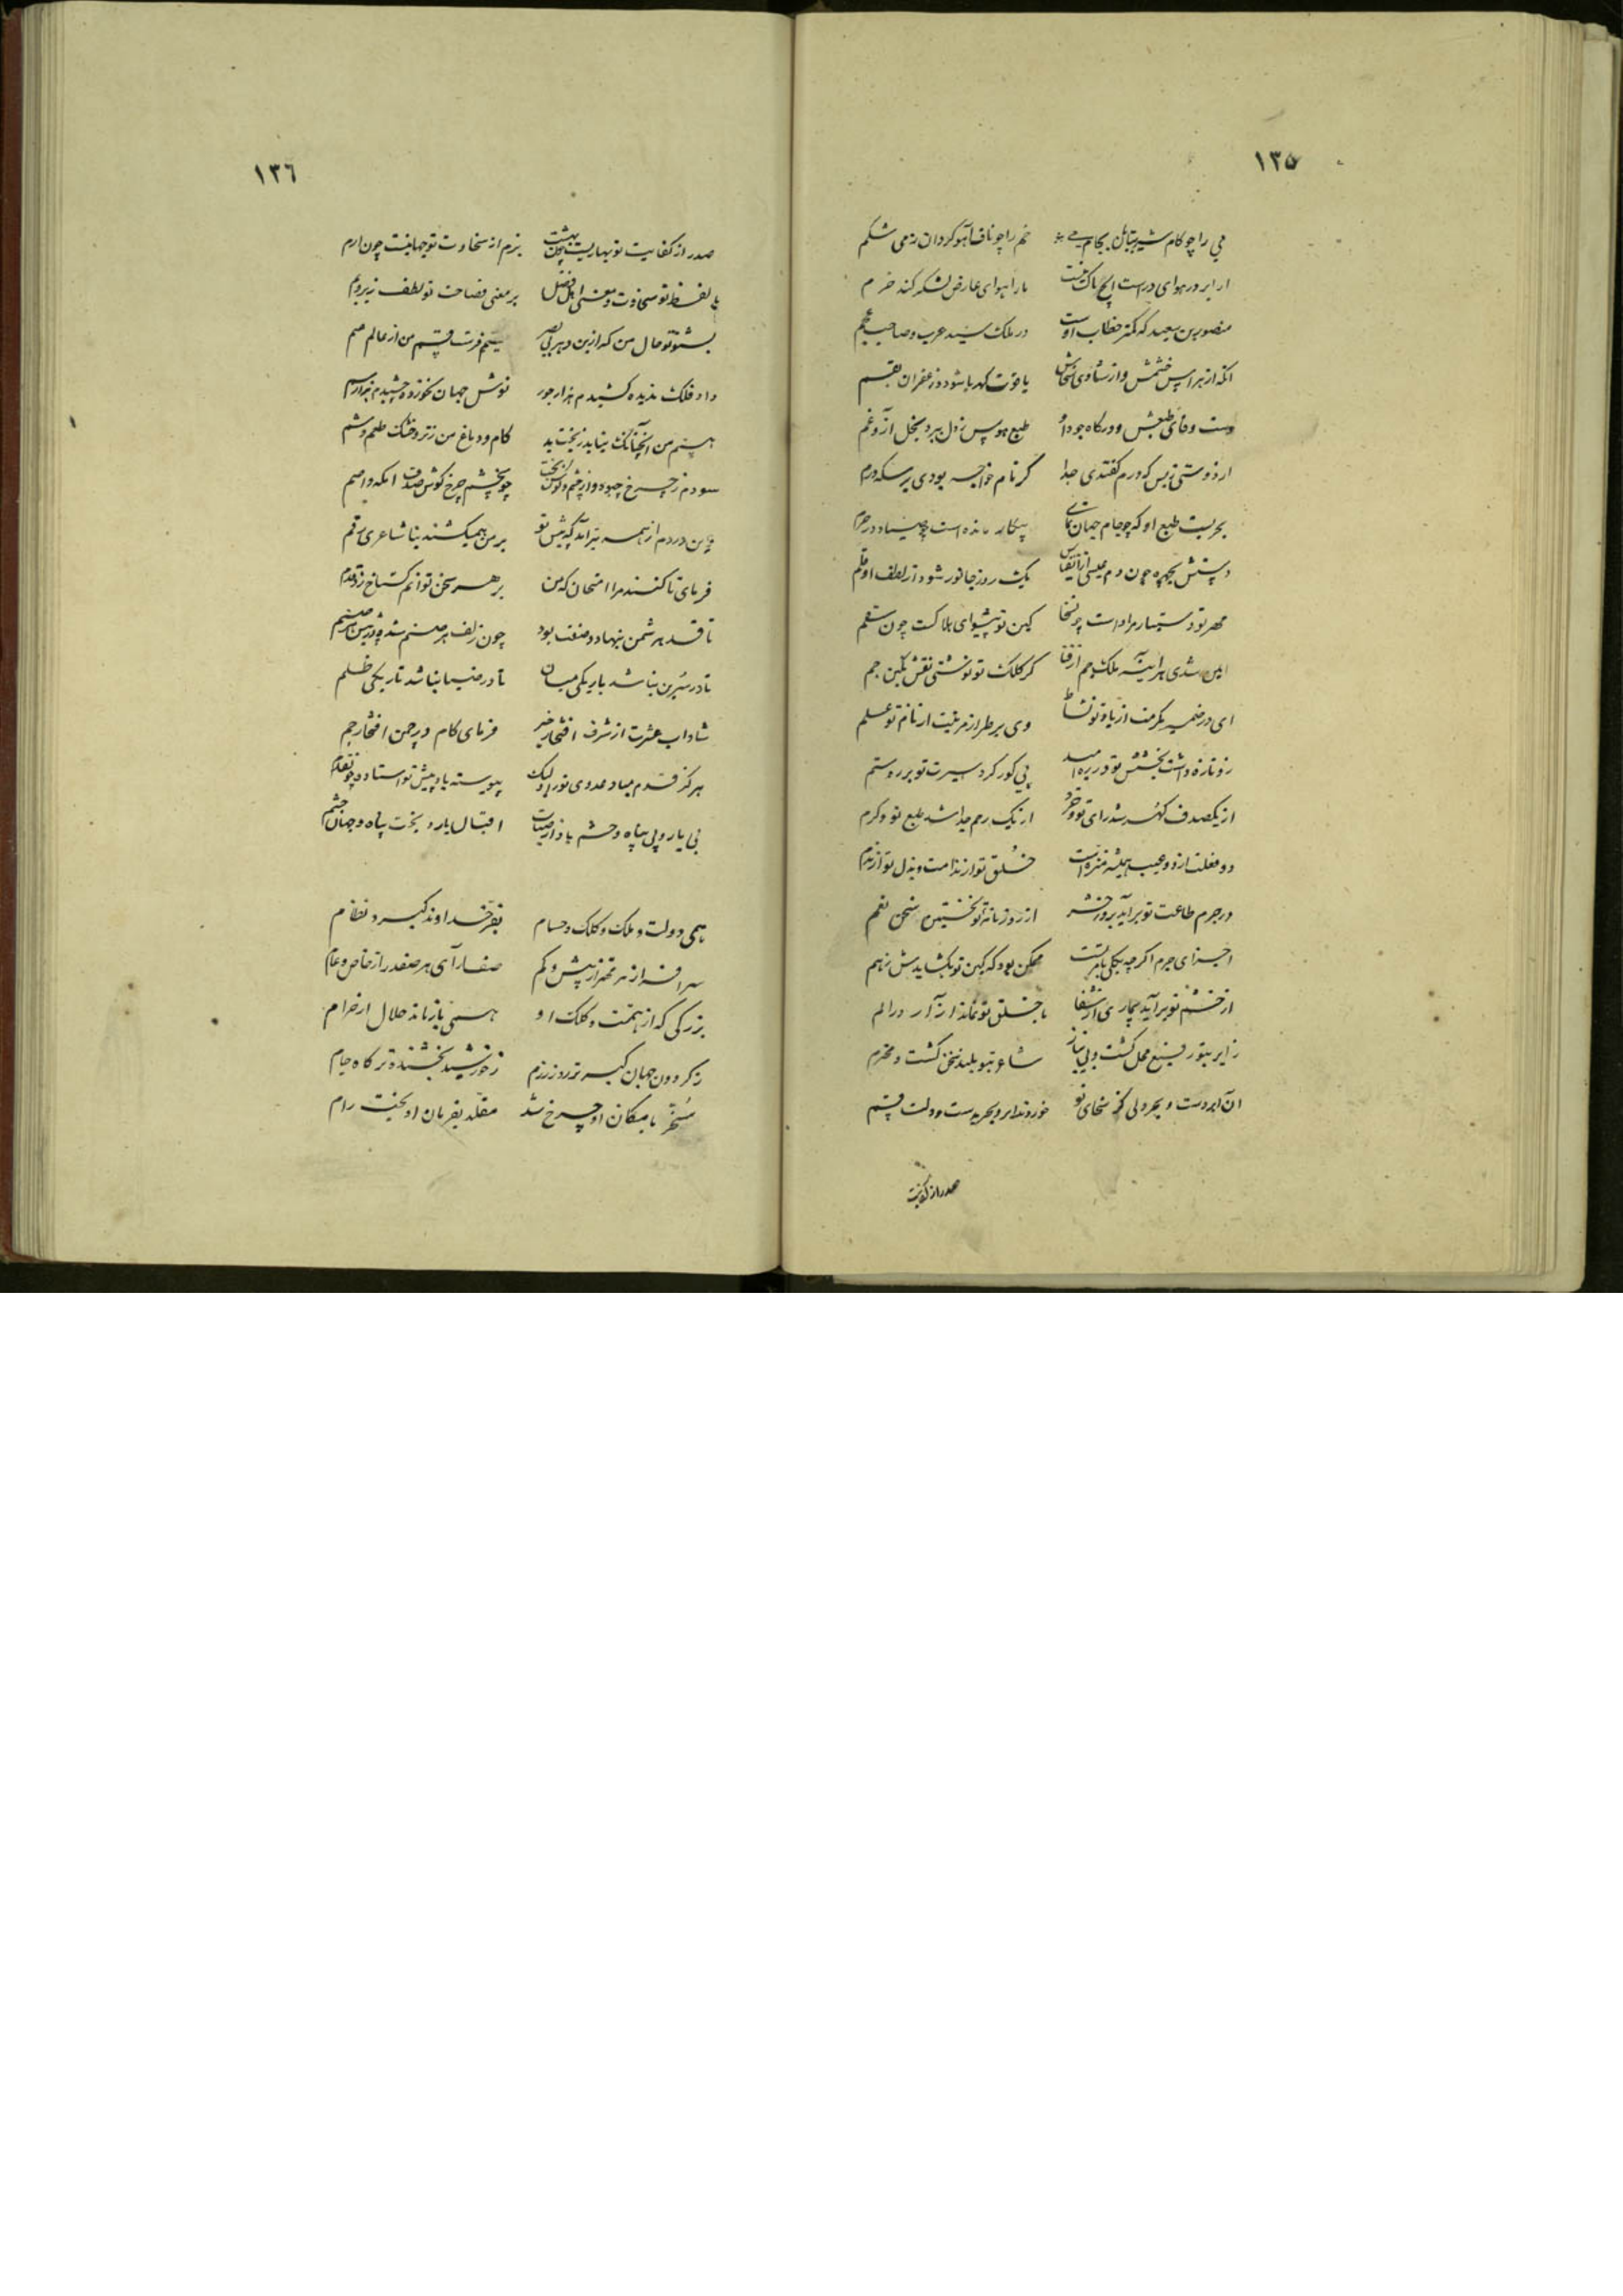 ١٣٥
می را چو کام شیر بتابان بجام می خم را چو ناف آهو کردان ز می شکم
ار ابر در هوای درست ما را هوای عارض لشکر کند خرم
منصور بن سعید که کمتر خطاب اوست در ملک سید عرب و صاحب عجم
انکه از هراس خشمش و از شادی سخاش یاقوت کهربا شود و زعفران بقم
دست وفای طبعش و درکاه جود او طبع هوس ز دل ببرد بخل آز و غم
از دوستی نویس که درم کفتدی جدا کر نام خواجه بودی بر سکه درم
بحریست طبع او که چو جام جهان نمای
دستش بچهره چون دم عیسی از انفاس یک روز جانور شود از لطف او قلم
مهر تو دستیار مراد است چون سخا کین تو پیشوای هلاکست چون سقم
ایمن شدی هر آینه ملک جم از فنا کر کلک تو نوشتی نقش نکین جم
ای در ضمیر مکرمت از یاد تو نشاط وی بر طراز مرتبت از نام تو علم
رو تازه داشت بخشش تو در بر امید پی کور کرد سیرت تو بر ره ستم
از یکصدف کهر شد رای تو و خرد از یک رحم جدا شد طبع تو و کرم
دو فعلت از دو عیب همیشه منزه است خلق تو از ندامت و بذل تو از ندم
در جرم طاعت تو بر آید بروز حشر از روزنامه تو نخستین سخن نعم
اجزای جرم اکر چه بیکی بار ممکن بود که کین تو بکشایدش ز هم
از خشم تو بر آید بیماری از شفا با خلق تو نماند آزار در الم
زایر بتو رفیع محل کشت و بی نیاز شاعر بتو بلند سخن کشت و محترم
آن ابر دست و بحر دلی کز سخای تو خوردند ابر و بحر بدست و دلت قسم
صدر از کفایت
١٣٦
صدر از کفایت تو بهاریست چون بهشت بزم از سخاوت تو جهانیست چون ارم
با لفظ تو سخاوت و معنی اهل فضل بر معنی فصاحت تو لطف زیر و بم
بشنو تو حال من که ازین دهر بی بصر بیشم فرست قسم من از عالم صمم
داد فلک ندیده کشیدم هزار جور نوش جهان نخورده چشیدم هزار سم
هستم من آنچنانک نیابد ز بخت بد کام و دماغ من ز تر و خشک طعم و شم
سودم ز چرخ چبود و از چشم و کوش بخت چو چشم چرخ کوش صدف اکمه و اصم
وین دردم از همه بتر آید که پیش تو بر من همیکشند بنا شاعری رقم
فرمای تا کنند مرا امتحان که من بر هر سخن توانم کستاخ زد قدم
تا قد هر شمن بنهاد و صفت بود چون زلف هر صنم شده در پیش هر صنم
تا در سرین نباشد باریکی میان تا در ضیا نباشد تاریکی ظلم
شاداب عشرت از شرف افتخار خیز فرمای کام و در چمن افتخار چم
هرکز قدم مباد عدوی تو را ولیک پیوسته باد پیش تو استاده چو قلم
بی یار و بی پناه و حشم باد از حیات اقبال یار و بخت پناه و جهان حشم
همی دولت و ملک و کلک و حسام بفر خداوند کیرد نظام
سرافراز هر مهتر از پیش و کم صف آرای هر صفدر از خاص و عام
بزرکی که از همت و کلک او همی باز ماند حلال از حرام
ز کردون جهان کیرتر روز رزم ز خورشید بخشنده تر کاه جام
مسخر بامکان او چرخ شد مقلد بفرمان او بخت رام